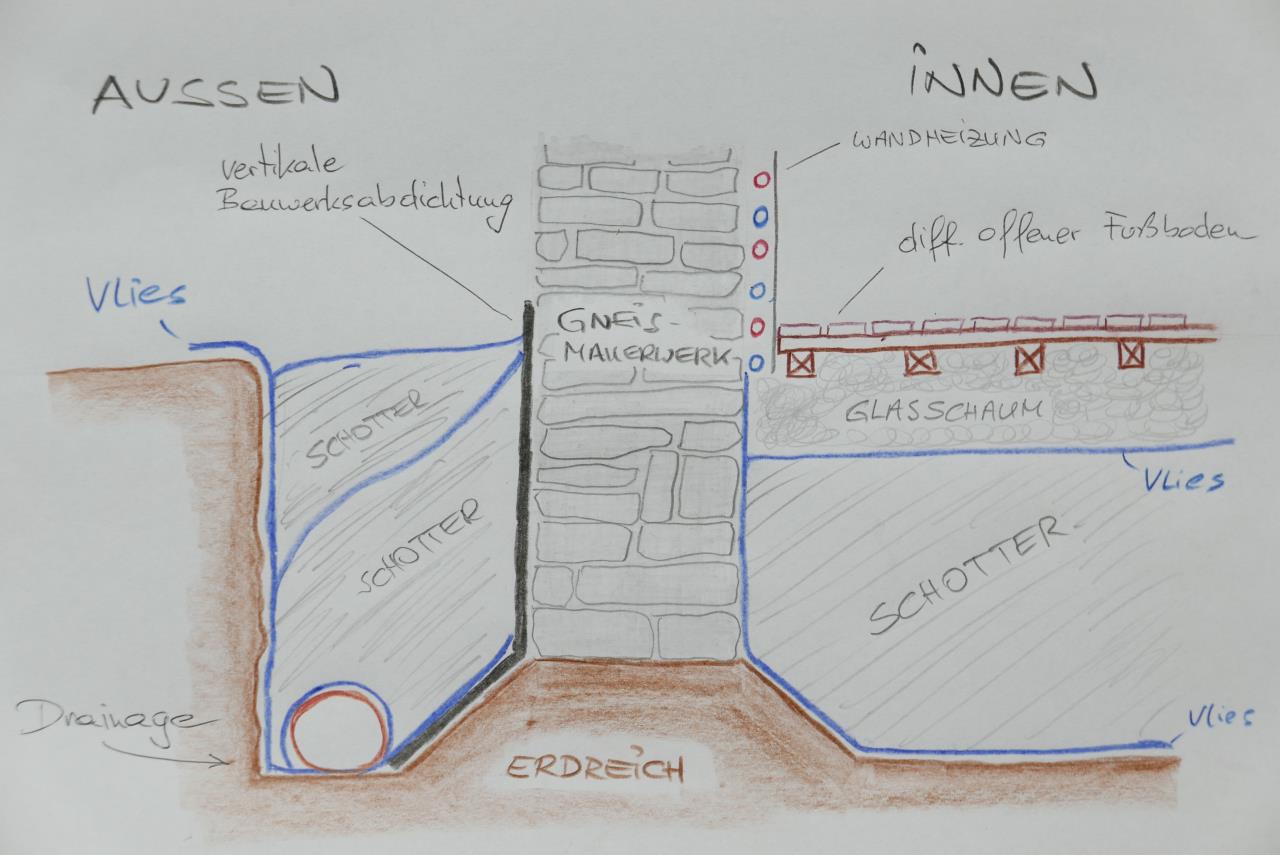 AUSSEN
INNEN
WANDHEIZUNG
vertikale
Bauwerksabdichtung
diff. offener Fußboden
Vlies
GNEIS-
MAUERWERK
SCHOTTER
GLASSCHAUM
Vlies
SCHOTTER
SCHOTTER
Drainage
Vlies
ERDREICH